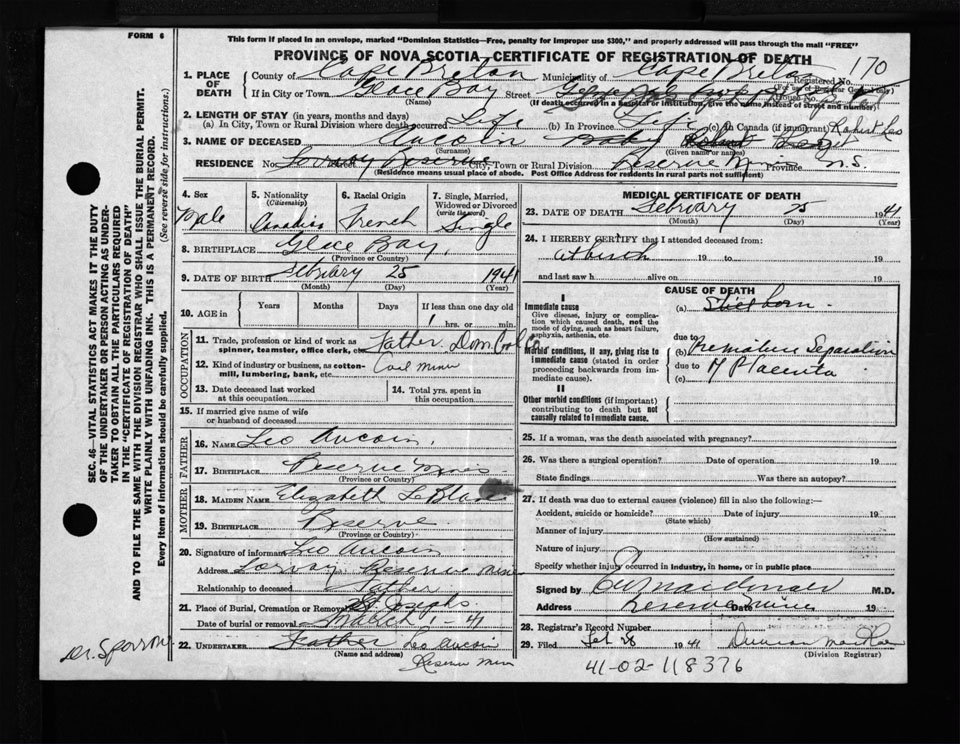 FORM 6
This form if placed in an envelope, marked "Dominion Statistics—Free, penalty for improper use $300," and properly addressed will pass through the mail "FREE"
PROVINCE OF NOVA SCOTIA—CERTIFICATE OF REGISTRATION OF DEATH
170
1. PLACE OF DEATH
County of Cape Breton Municipality of Cape Breton Registered No.
(For use of Registrar General only)
If in City or Town Glace Bay Street
(Name) (If death occurred in a hospital or institution, give the name instead of street and number)
2. LENGTH OF STAY (in years, months and days)
(a) In City, Town or Rural Division where death occurred Life (b) In Province Life (c) In Canada (if immigrant)
3. NAME OF DECEASED Aucoin Baby
(Surname) (Given name or names)
RESIDENCE No. Lorway Reserve City, Town or Rural Division Reserve Mines Province N.S.
(Residence means usual place of abode. Post Office Address for residents in rural parts not sufficient)
4. Sex Male
5. Nationality (Citizenship) Canadian
6. Racial Origin French
7. Single, Married, Widowed or Divorced (write the word) Single
8. BIRTHPLACE Glace Bay,
(Province or Country)
9. DATE OF BIRTH February 25 1941
(Month) (Day) (Year)
10. AGE in Years Months Days If less than one day old
hrs. or min.
OCCUPATION
11. Trade, profession or kind of work as spinner, teamster, office clerk, etc. Father. Dom. Coal Co
12. Kind of industry or business, as cotton-mill, lumbering, bank, etc. Coal Mine
13. Date deceased last worked at this occupation
14. Total yrs. spent in this occupation
15. If married give name of wife or husband of deceased
FATHER
16. NAME Leo Aucoin,
17. BIRTHPLACE Reserve Mines
(Province or Country)
MOTHER
18. MAIDEN NAME Elizabeth LeBlanc
19. BIRTHPLACE Reserve
(Province or Country)
20. Signature of informant Leo Aucoin
Address Lorway Reserve Mines
Relationship to deceased Father
21. Place of Burial, Cremation or Removal St Josephs
Date of burial or removal March 1 - 41
22. UNDERTAKER Father Leo Aucoin
(Name and address) Reserve Mines
MEDICAL CERTIFICATE OF DEATH
23. DATE OF DEATH February 25 1941
(Month) (Day) (Year)
24. I HEREBY CERTIFY that I attended deceased from:
at birth 19 to 19
and last saw h alive on 19
CAUSE OF DEATH
I
Immediate cause (a) Still born.
Give disease, injury or complication which caused death, not the mode of dying, such as heart failure, asphyxia, asthenia, etc.
due to
Morbid conditions, if any, giving rise to immediate cause (stated in order proceeding backwards from immediate cause).
(b) Premature Separation
due to
(c) of Placenta
II
Other morbid conditions (if important) contributing to death but not causally related to immediate cause.
25. If a woman, was the death associated with pregnancy?
26. Was there a surgical operation? Date of operation 19
State findings Was there an autopsy?
27. If death was due to external causes (violence) fill in also the following:—
Accident, suicide or homicide? Date of injury 19
(State which)
Manner of injury
(How sustained)
Nature of injury
Specify whether injury occurred in industry, in home, or in public place
Signed by M.D.
Address Reserve Mines Date 19
28. Registrar's Record Number
29. Filed Feb 28 1941
(Division Registrar)
41-02-118376
SEC. 46—VITAL STATISTICS ACT MAKES IT THE DUTY
OF THE UNDERTAKER OR PERSON ACTING AS UNDER-
TAKER TO OBTAIN ALL THE PARTICULARS REQUIRED
IN THE "CERTIFICATE OF REGISTRATION OF DEATH"
AND TO FILE THE SAME WITH THE DIVISION REGISTRAR WHO SHALL ISSUE THE BURIAL PERMIT.
WRITE PLAINLY WITH UNFADING INK. THIS IS A PERMANENT RECORD.
Every item of information should be carefully supplied. (See reverse side for instructions.)